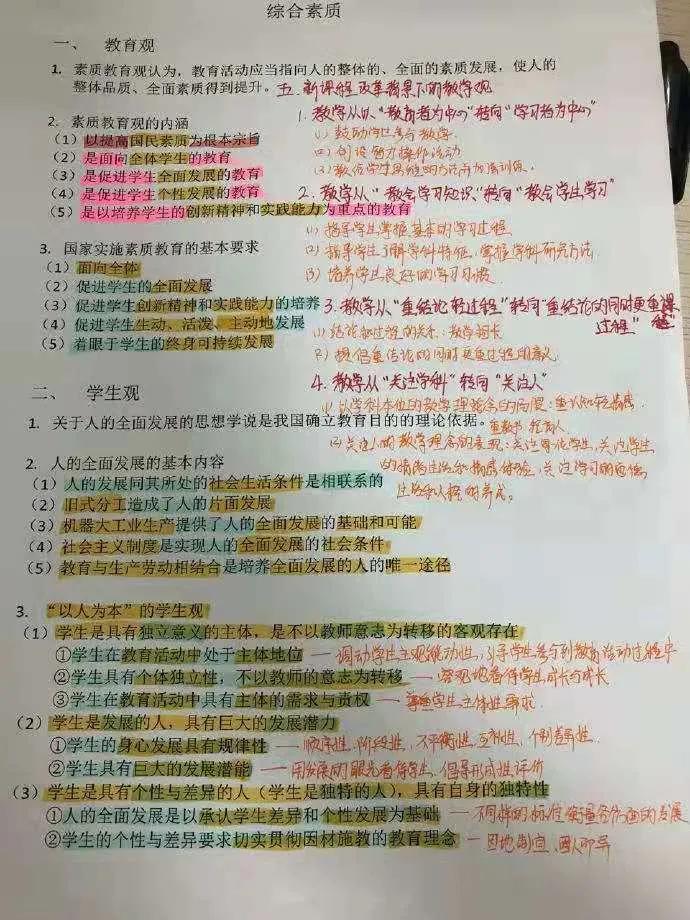 综合素质
一、 教育观
1. 素质教育观认为，教育活动应当指向人的整体的、全面的素质发展，使人的
整体品质、全面素质得到提升。
2. 素质教育观的内涵
（1）以提高国民素质为根本宗旨
（2）是面向全体学生的教育
（3）是促进学生全面发展的教育
（4）是促进学生个性发展的教育
（5）是以培养学生的创新精神和实践能力为重点的教育
3. 国家实施素质教育的基本要求
（1）面向全体
（2）促进学生的全面发展
（3）促进学生创新精神和实践能力的培养
（4）促进学生生动、活泼、主动地发展
（5）着眼于学生的终身可持续发展
五. 新课程改革背景下的教学观
1. 教学从以“教育者为中心”转向“学习者为中心”
1) 鼓励学生参与教学
2) 创设智力操作活动
2. 教学从“教会学习知识”转向“教会学生学习”
1) 指导学生掌握基本的学习过程
2) 指导学生了解学科特征，掌握学科研究方法
3) 培养学生良好的学习习惯
3. 教学从“重结论轻过程”转向“重结论的同时更重过程”
1) 结论和过程的关系：教学
2) 提倡重结论的同时更重过程的意义
4. 教学从“关注学科”转向“关注人”
1) 以学科本位的教学理念的局限：重认知轻情感.
重教书 轻育人.
2) 关注人的教学理念的表现：关注每位学生，关注学生
的情绪生活和情感体验，关注学习的道德
生活和人格的养成。
二、 学生观
1. 关于人的全面发展的思想学说是我国确立教育目的的理论依据。
2. 人的全面发展的基本内容
（1）人的发展同其所处的社会生活条件是相联系的
（2）旧式分工造成了人的片面发展
（3）机器大工业生产提供了人的全面发展的基础和可能
（4）社会主义制度是实现人的全面发展的社会条件
（5）教育与生产劳动相结合是培养全面发展的人的唯一途径
3. “以人为本”的学生观
（1）学生是具有独立意义的主体，是不以教师意志为转移的客观存在
①学生在教育活动中处于主体地位 — 调动学生主观能动性，引导学生参与到教育活动过程中
②学生具有个体独立性，不以教师的意志为转移 — 客观地看待学生成长与成长
③学生在教育活动中具有主体的需求与责权 — 尊重学生主体性要求
（2）学生是发展的人，具有巨大的发展潜力
①学生的身心发展具有规律性 — 顺序性、阶段性、不平衡性、互补性、个别差异性
②学生具有巨大的发展潜能 — 用发展的眼光看待学生，倡导形成性评价
（3）学生是具有个性与差异的人（学生是独特的人），具有自身的独特性
①人的全面发展是以承认学生差异和个性发展为基础 — 不同样的标准衡量各方面的发展
②学生的个性与差异要求切实贯彻因材施教的教育理念 — 因地制宜，因人而异